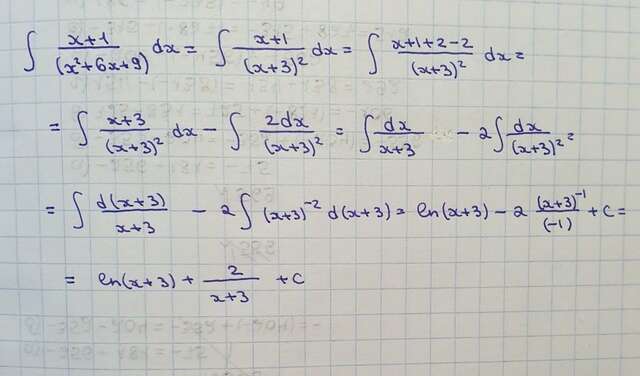 ∫ x+1/(x²+6x+9) dx = ∫ x+1/(x+3)² dx = ∫ x+1+2-2/(x+3)² dx =
= ∫ x+3/(x+3)² dx - ∫ 2dx/(x+3)² = ∫ dx/x+3 - 2∫ dx/(x+3)² =
= ∫ d(x+3)/x+3 - 2∫ (x+3)⁻² d(x+3) = ln(x+3) - 2 (x+3)⁻¹/(-1) + C =
= ln(x+3) + 2/x+3 + C